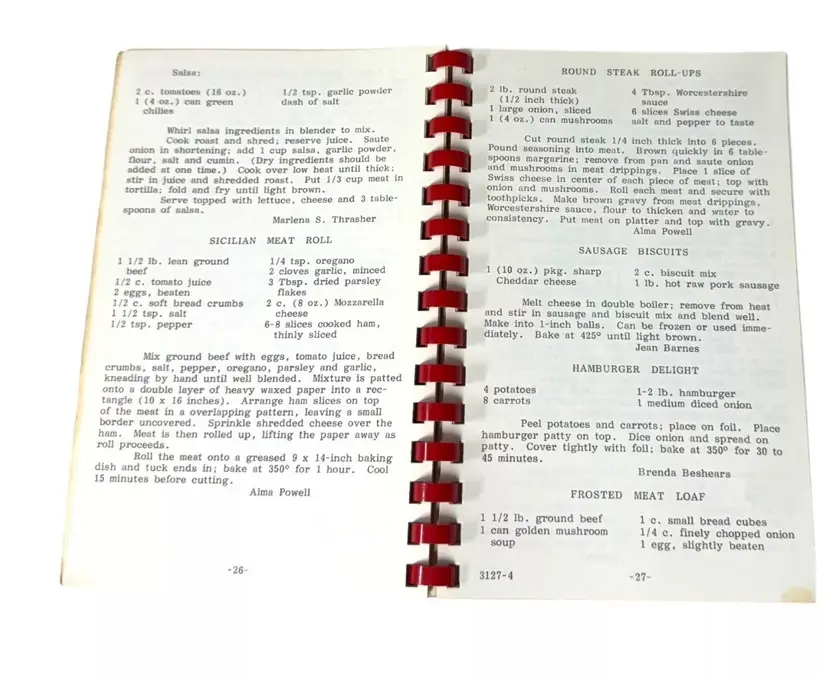 Salsa:
2 c. tomatoes (16 oz.) 1/2 tsp. garlic powder
1 (4 oz.) can green dash of salt
chilies
Whirl salsa ingredients in blender to mix.
Cook roast and shred; reserve juice. Saute
onion in shortening; add 1 cup salsa, garlic powder,
flour, salt and cumin. (Dry ingredients should be
added at one time.) Cook over low heat until thick;
stir in juice and shredded roast. Put 1/3 cup meat in
tortilla; fold and fry until light brown.
Serve topped with lettuce, cheese and 3 table-
spoons of salsa.
Marlena S. Thrasher
SICILIAN MEAT ROLL
1 1/2 lb. lean ground 1/4 tsp. oregano
beef 2 cloves garlic, minced
1/2 c. tomato juice 3 Tbsp. dried parsley
2 eggs, beaten flakes
1/2 c. soft bread crumbs 2 c. (8 oz.) Mozzarella
1 1/2 tsp. salt cheese
1/2 tsp. pepper 6-8 slices cooked ham,
thinly sliced
Mix ground beef with eggs, tomato juice, bread
crumbs, salt, pepper, oregano, parsley and garlic,
kneading by hand until well blended. Mixture is patted
onto a double layer of heavy waxed paper into a rec-
tangle (10 x 16 inches). Arrange ham slices on top
of the meat in a overlapping pattern, leaving a small
border uncovered. Sprinkle shredded cheese over the
ham. Meat is then rolled up, lifting the paper away as
roll proceeds.
Roll the meat onto a greased 9 x 14-inch baking
dish and tuck ends in; bake at 350° for 1 hour. Cool
15 minutes before cutting.
Alma Powell
-26-
ROUND STEAK ROLL-UPS
2 lb. round steak 4 Tbsp. Worcestershire
(1/2 inch thick) sauce
1 large onion, sliced 6 slices Swiss cheese
1 (4 oz.) can mushrooms salt and pepper to taste
Cut round steak 1/4 inch thick into 6 pieces.
Pound seasoning into meat. Brown quickly in 6 table-
spoons margarine; remove from pan and saute onion
and mushrooms in meat drippings. Place 1 slice of
Swiss cheese in center of each piece of meat; top with
onion and mushrooms. Roll each meat and secure with
toothpicks. Make brown gravy from meat drippings,
Worcestershire sauce, flour to thicken and water to
consistency. Put meat on platter and top with gravy.
Alma Powell
SAUSAGE BISCUITS
1 (10 oz.) pkg. sharp 2 c. biscuit mix
Cheddar cheese 1 lb. hot raw pork sausage
Melt cheese in double boiler; remove from heat
and stir in sausage and biscuit mix and blend well.
Make into 1-inch balls. Can be frozen or used imme-
diately. Bake at 425° until light brown.
Jean Barnes
HAMBURGER DELIGHT
4 potatoes 1-2 lb. hamburger
8 carrots 1 medium diced onion
Peel potatoes and carrots; place on foil. Place
hamburger patty on top. Dice onion and spread on
patty. Cover tightly with foil; bake at 350° for 30 to
45 minutes.
Brenda Beshears
FROSTED MEAT LOAF
1 1/2 lb. ground beef 1 c. small bread cubes
1 can golden mushroom 1/4 c. finely chopped onion
soup 1 egg, slightly beaten
3127-4 -27-